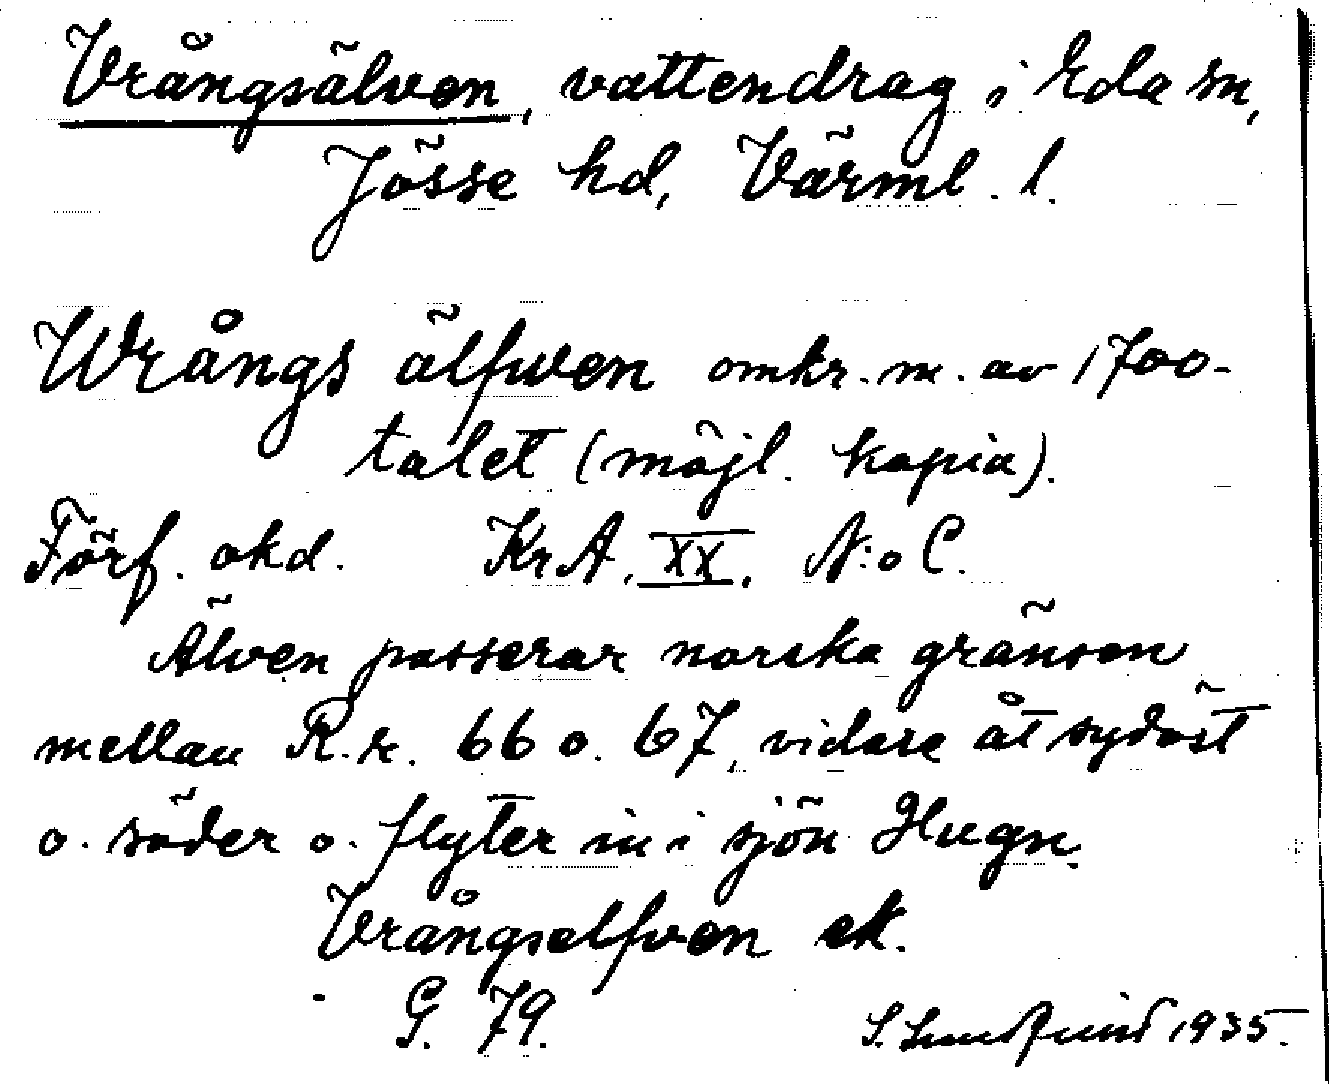 Vrångsälven, vattendrag i Eda sn,
Jösse hd, Värml. l.
Wrångs älfwen omkr. m. av 1700-
talet (möjl. kopia).
Förf. okd. KrA. XX. N:o C.
Älven passerar norska gränsen
mellan R.r. 66 o. 67, vidare åt sydöst
o. söder o. flyter in i sjön Hugn.
Vrångselfven ek.
G. 79.
S. 1935.